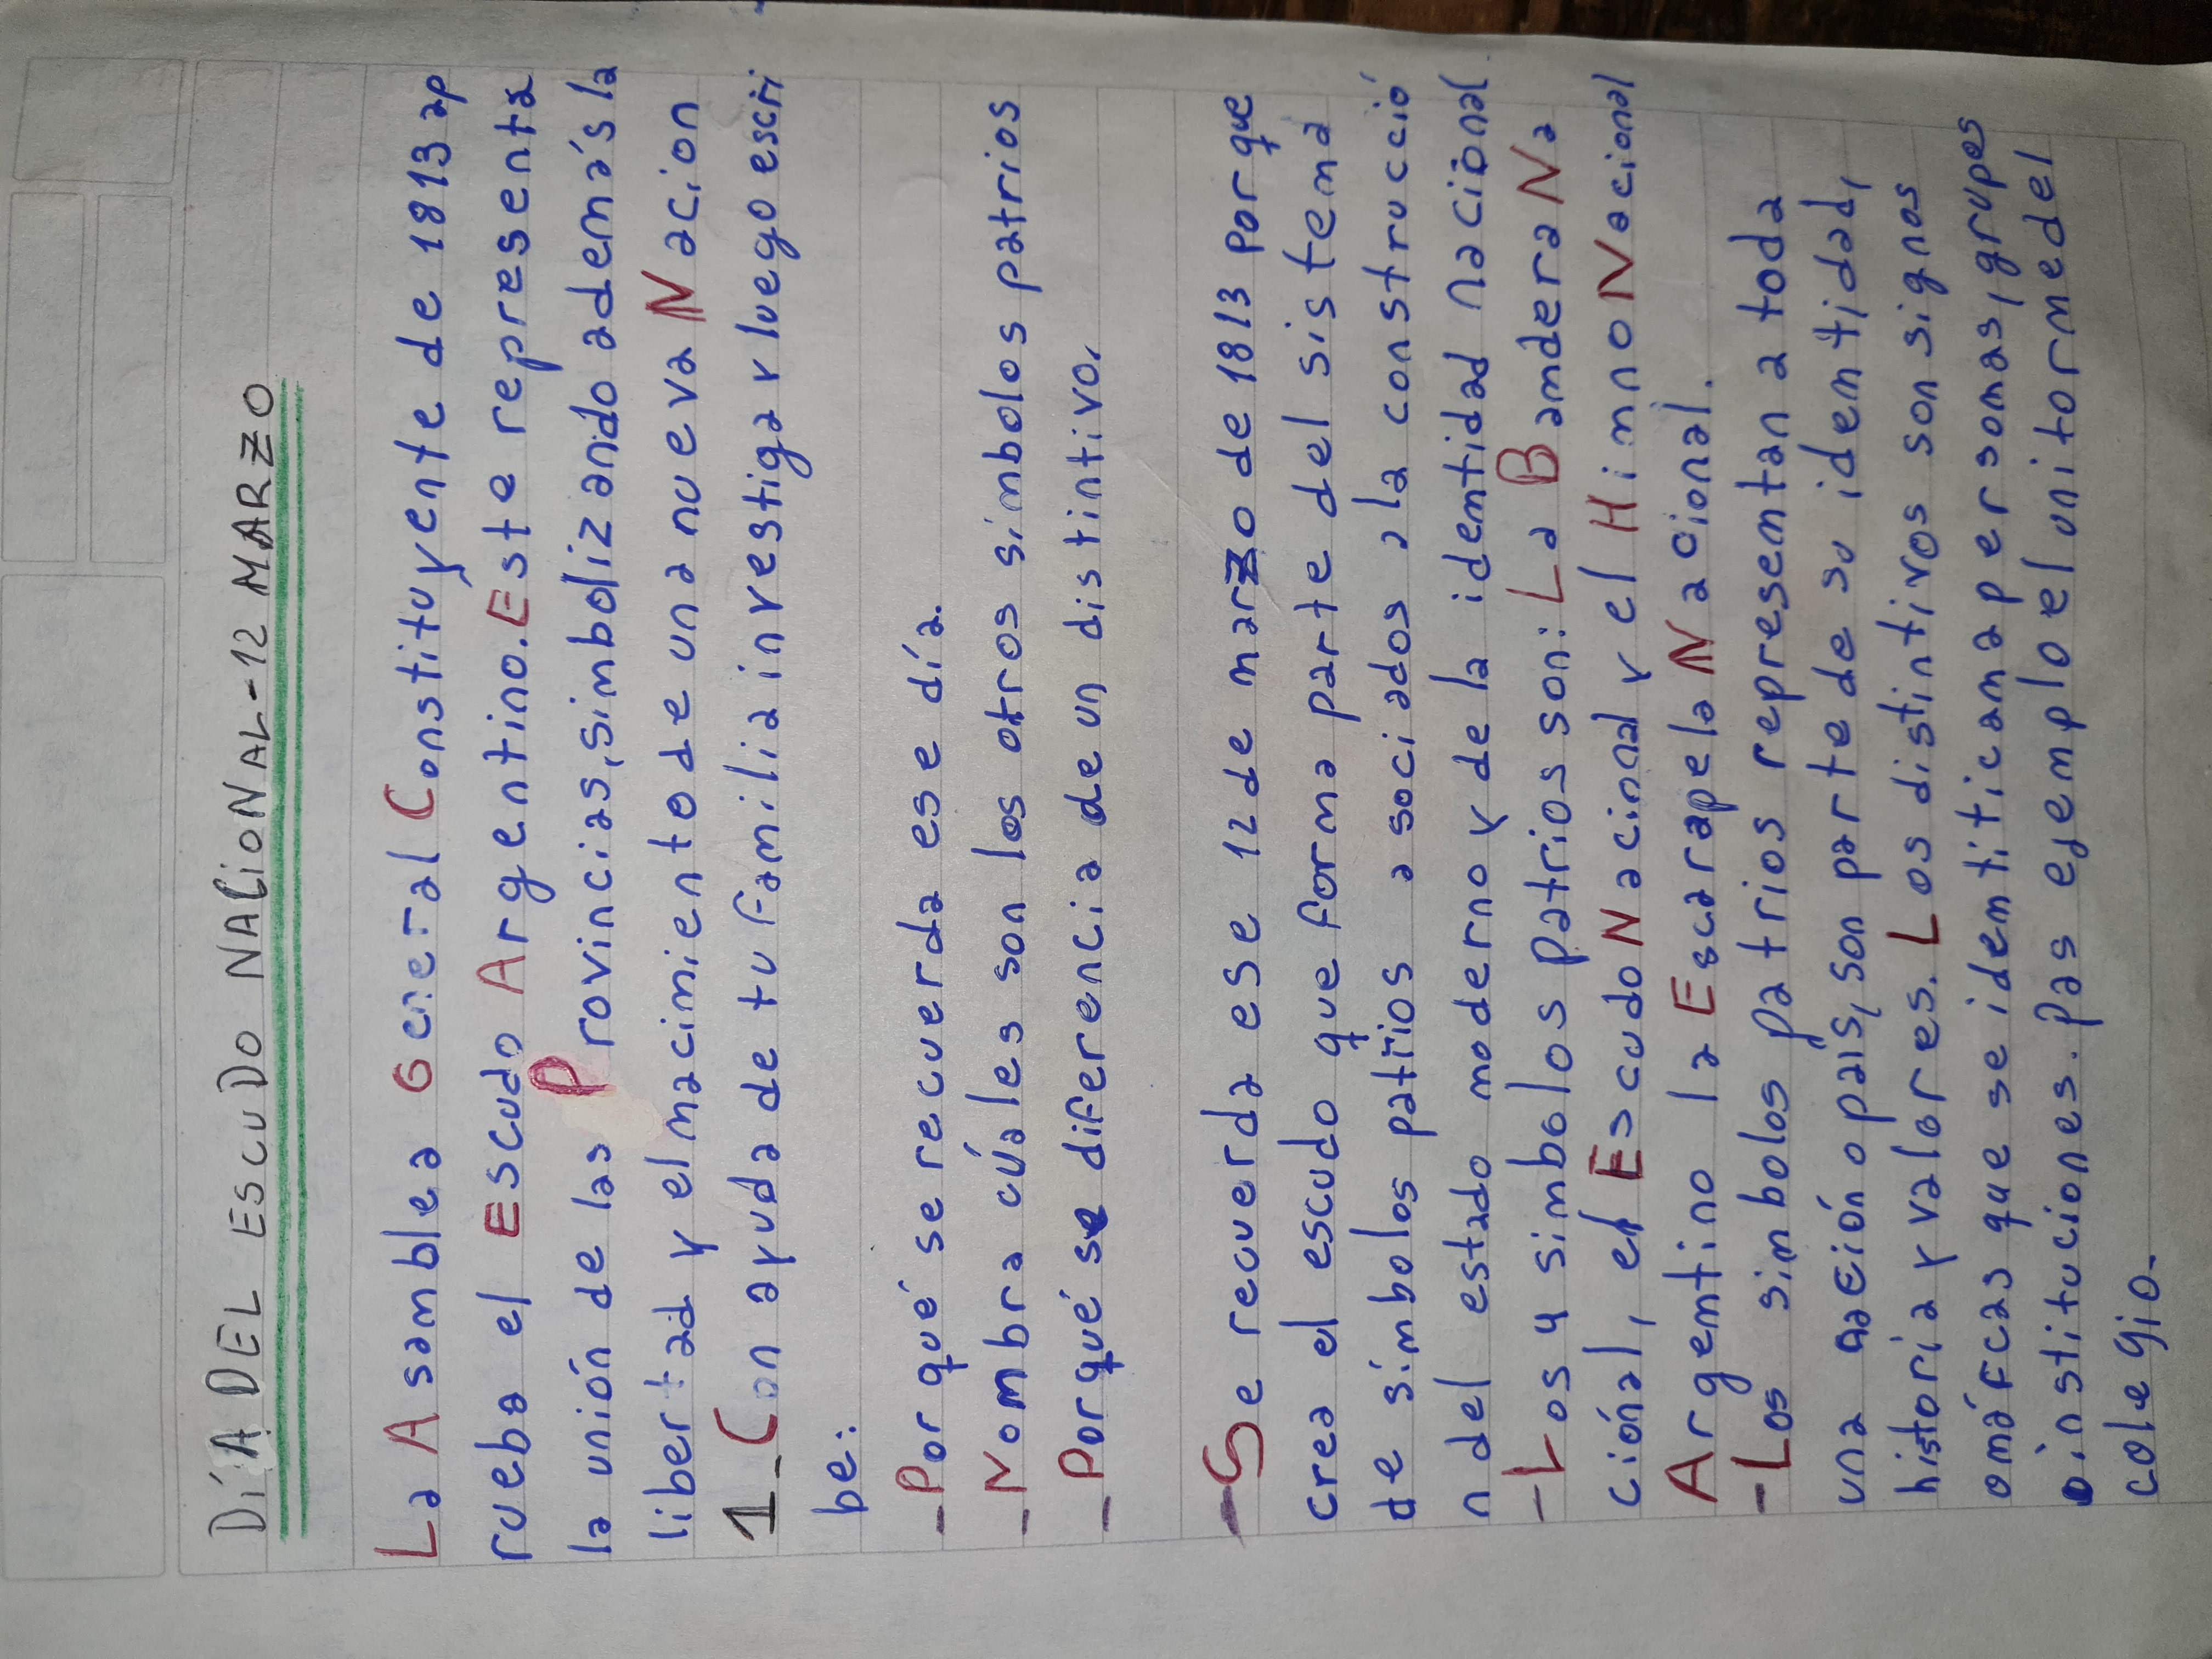 DÍA DEL ESCUDO NACIONAL-12 MARZO
La Asamblea General Constituyente de 1813 ap
rueba el Escudo Argentino. Este representa
la unión de las Provincias, simbolizando además la
libertad y el nacimiento de una nueva Nacion
1_Con ayuda de tu familia investiga y luego escri
be:
_Por qué se recuerda ese día.
_Nombra cúales son los otros simbolos patrios
_Porqué se diferencia de un distintivo.
-Se recuerda ese 12 de marzo de 1813 Porque
crea el escudo que forma parte del sistema
de símbolos patrios asociados a la construcció
n del estado moderno y de la identidad nacional.
-Los 4 simbolos patrios son: La Bandera Na
ciónal, el Escudo Nacional y el Himno Nacional
Argentino la Escarapela Nacional.
-Los simbolos patrios represemtan a toda
una nación o país, son parte de su identidad,
historia y valores. Los distintivos son signos
o márcas que se identifican a persomas, grupos
o instituciones. pas ejemplo el uniforme del
colegio.